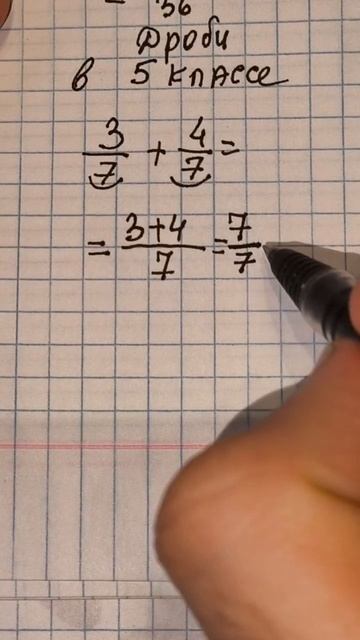 36
Дроби
в 5 классе
3/7 + 4/7 =
= 3+4/7 = 7/7